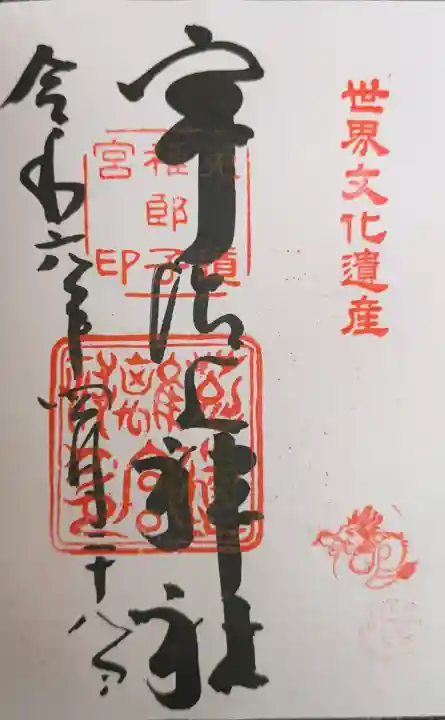 世界文化遺産
宇治上神社
菟道稚郎子宮印
令和六年四月二十八日